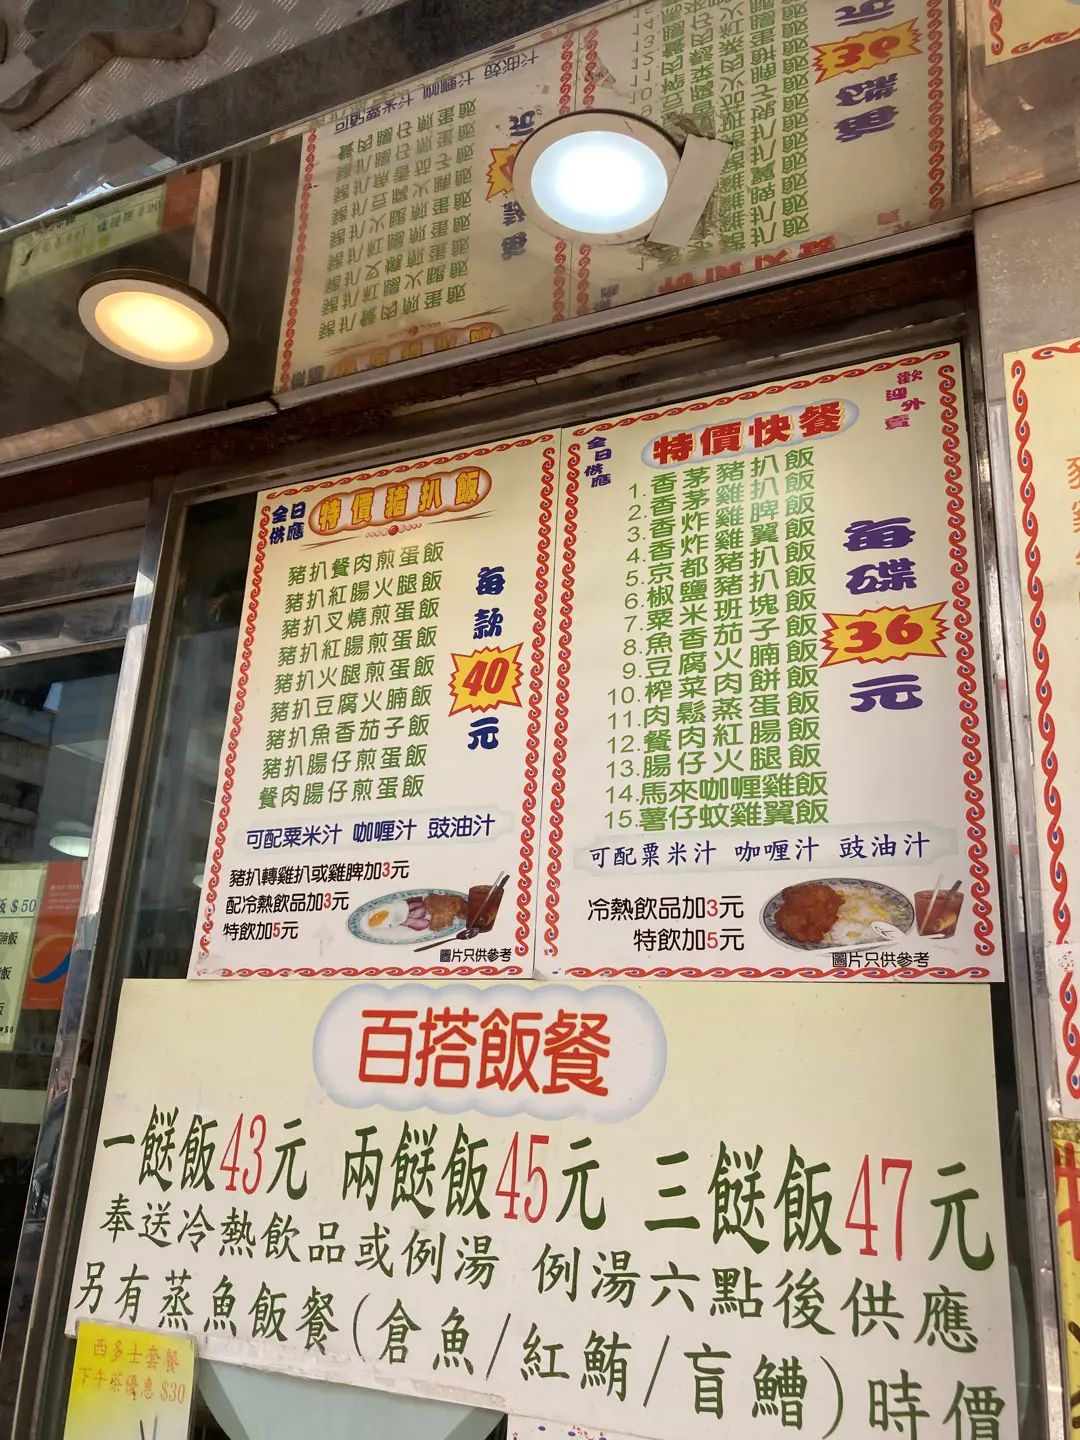 全日
供應
特價豬扒飯
豬扒餐肉煎蛋飯
豬扒紅腸火腿飯
豬扒叉燒煎蛋飯
豬扒紅腸煎蛋飯
豬扒火腿煎蛋飯
豬扒豆腐火腩飯
豬扒魚香茄子飯
豬扒腸仔煎蛋飯
餐肉腸仔煎蛋飯
每款
40
元
可配粟米汁 咖喱汁 豉油汁
豬扒轉雞扒或雞脾加3元
配冷熱飲品加3元
特飲加5元
圖片只供參考
全日供應
特價快餐
歡迎外賣
1.香茅豬扒飯
2.香茅雞扒飯
3.香炸雞脾飯
4.香炸雞翼飯
5.京都豬扒飯
6.椒鹽豬扒飯
7.粟米班塊飯
8.魚香茄子飯
9.豆腐火腩飯
10.榨菜肉餅飯
11.肉鬆蒸蛋飯
12.餐肉紅腸飯
13.腸仔火腿飯
14.馬來咖喱雞飯
15.薯仔蚊雞翼飯
每碟
36
元
可配粟米汁 咖喱汁 豉油汁
冷熱飲品加3元
特飲加5元
圖片只供參考
百搭飯餐
一餸飯43元 兩餸飯45元 三餸飯47元
奉送冷熱飲品或例湯 例湯六點後供應
另有蒸魚飯餐(倉魚/紅鮪/盲鰽)時價
西多士套餐
下午茶優惠$30